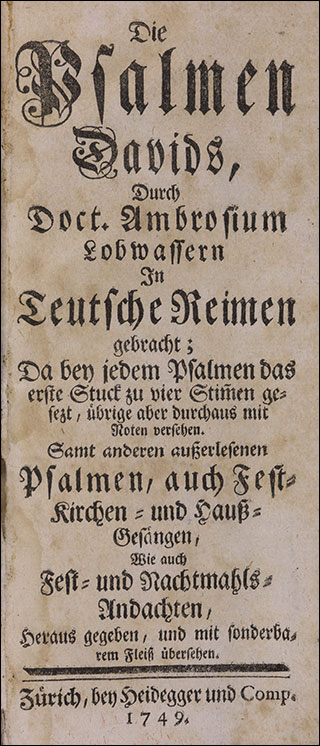 Die
Psalmen
Davids,
Durch
Doct. Ambrosium
Lobwassern
In
Teutsche Reimen
gebracht;
Da bey jedem Psalmen das
erste Stuck zu vier Stim̃en ge-
sezt, übrige aber durchaus mit
Noten versehen.
Samt anderen außerlesenen
Psalmen, auch Fest-
Kirchen- und Hauß-
Gesängen,
Wie auch
Fest- und Nachtmahls-
Andachten,
Heraus gegeben, und mit sonderba-
rem Fleiß übersehen.
Zürich, bey Heidegger und Comp.
1749.